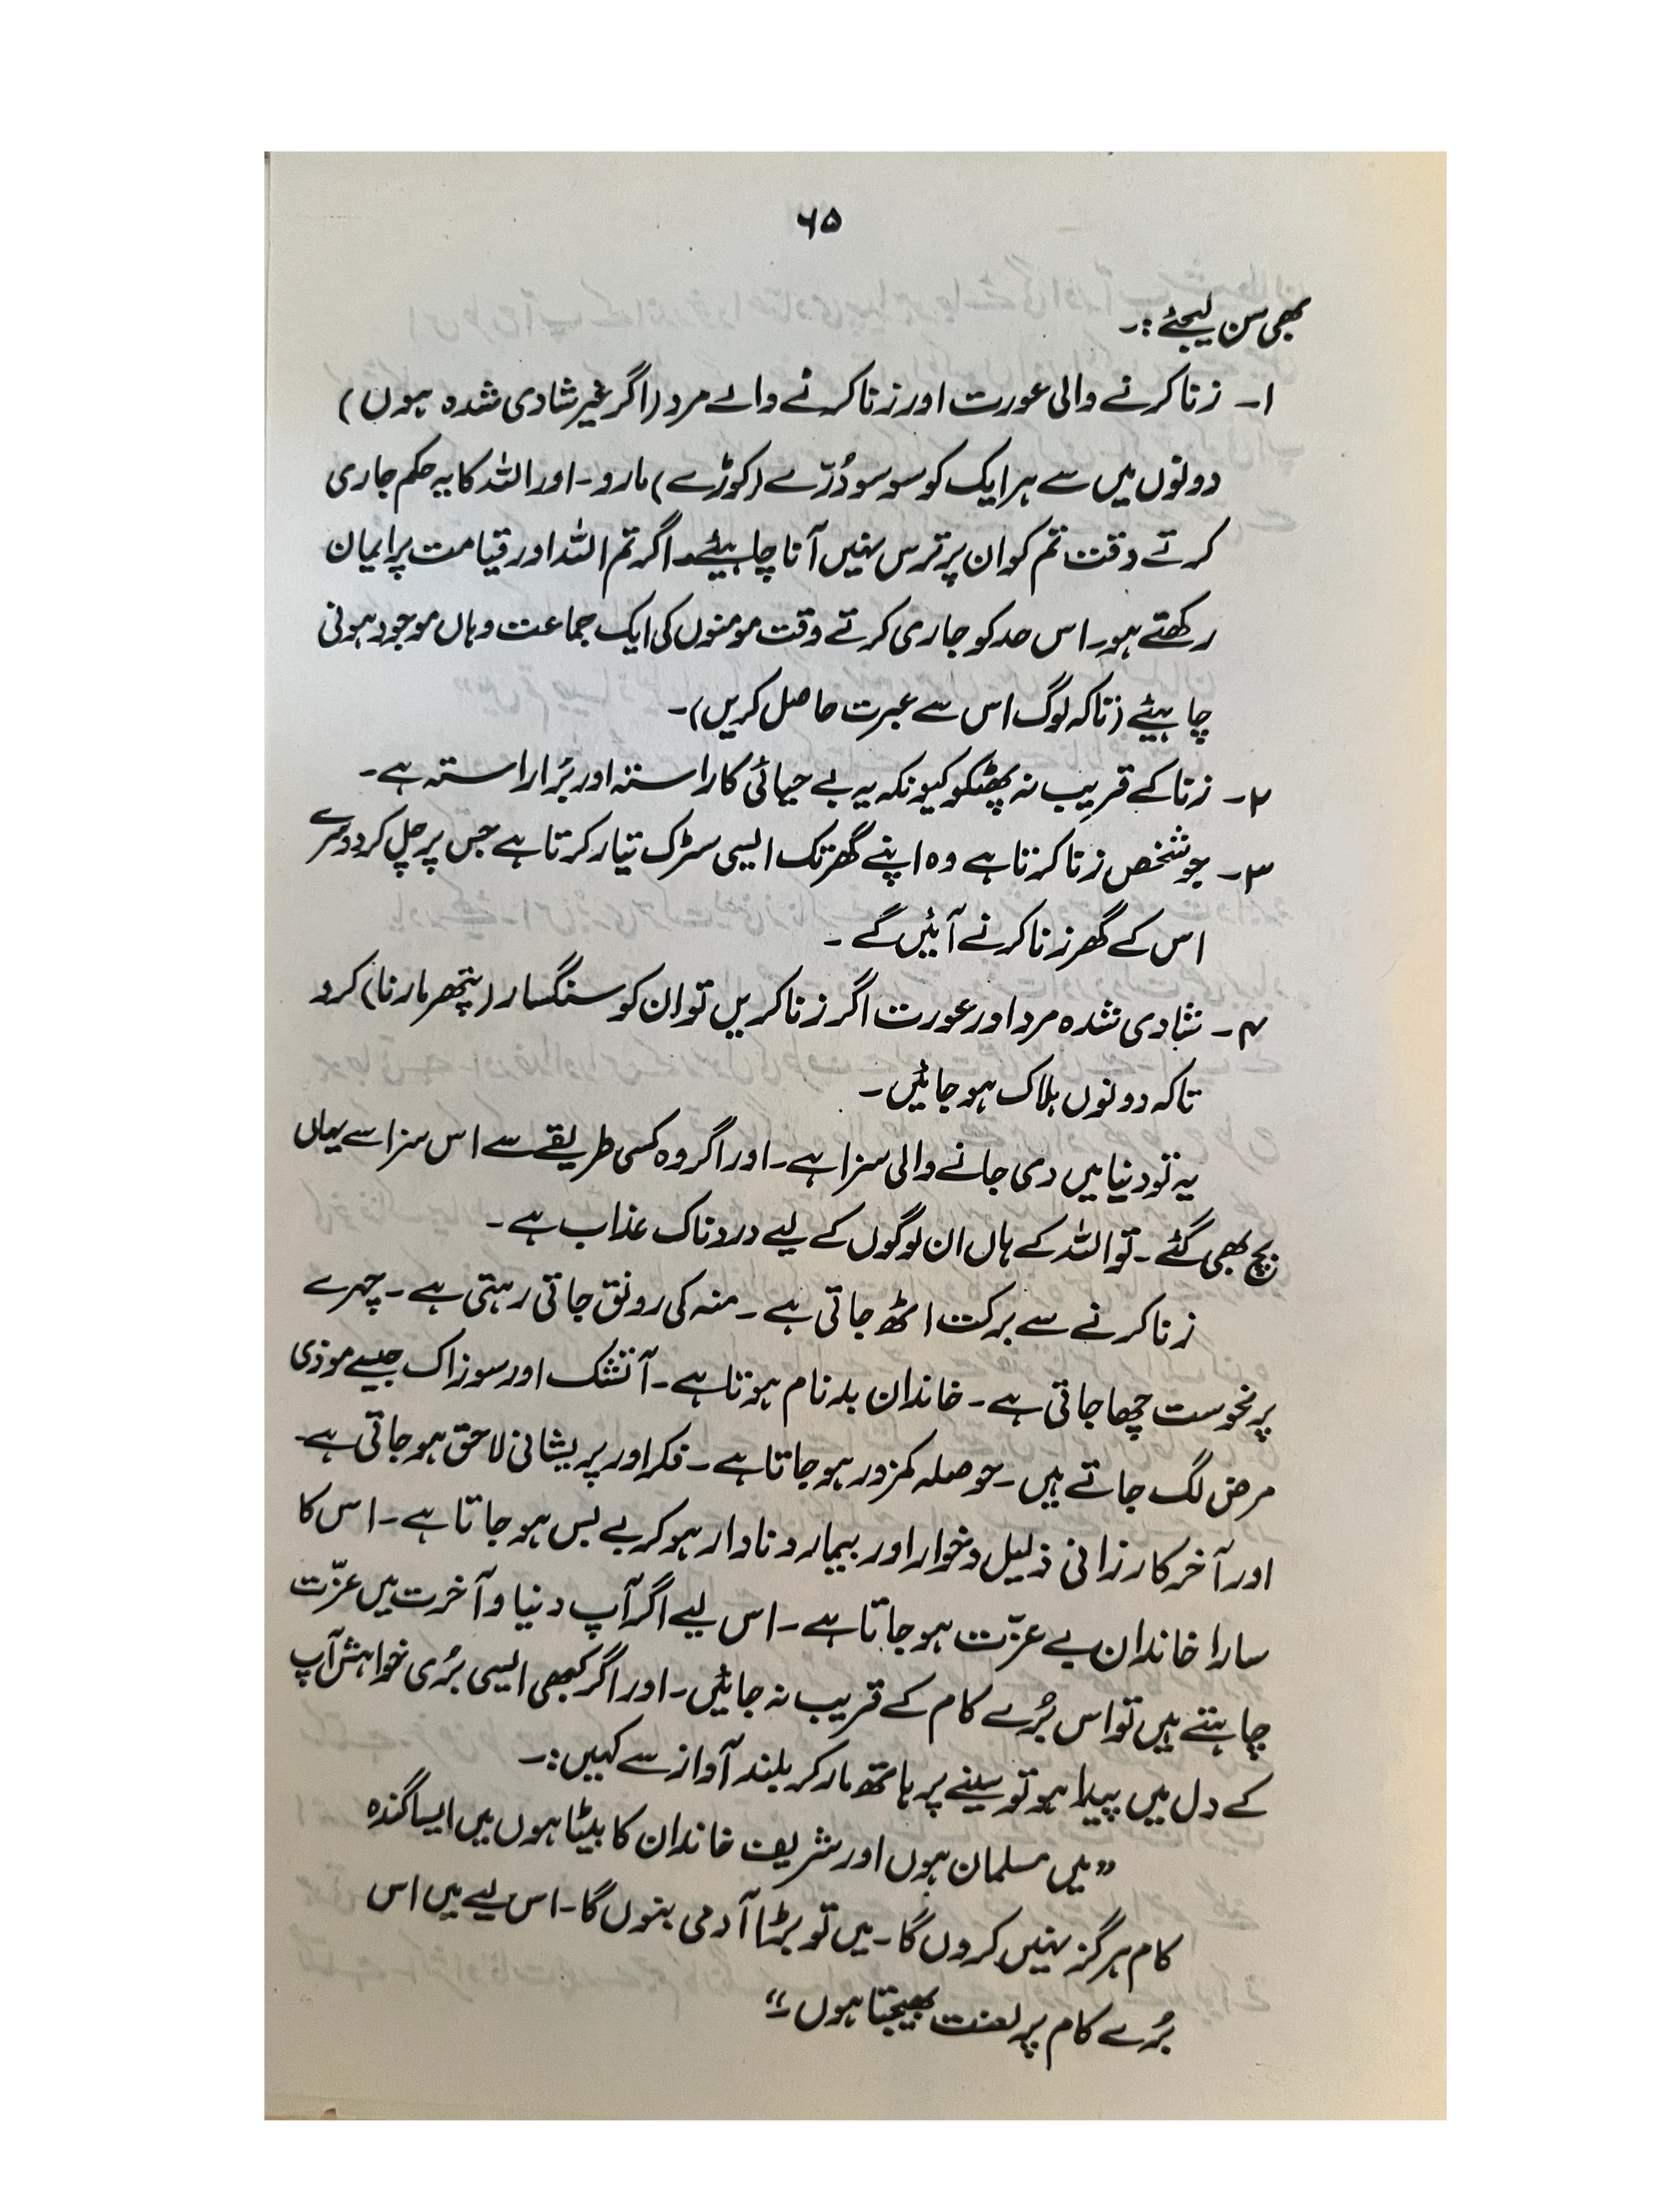 ۶۵
بھی سن لیجئے :۔
۱۔ زنا کرنے والی عورت اور زنا کرنے والے مرد (اگر غیر شادی شدہ ہوں)
دونوں میں سے ہر ایک کو سو سو دُرّے (کوڑے) مارو۔ اور اللہ کا یہ حکم جاری
کرتے وقت تم کو ان پر ترس نہیں آنا چاہیئے۔ اگر تم اللہ اور قیامت پر ایمان
رکھتے ہو۔ اس حد کو جاری کرتے وقت مومنوں کی ایک جماعت وہاں موجود ہونی
چاہیئے (تاکہ لوگ اس سے عبرت حاصل کریں)۔
۲۔ زنا کے قریب نہ پھٹکو کیونکہ یہ بے حیائی کا راستہ اور بُرا راستہ ہے۔
۳۔ جو شخص زنا کرتا ہے وہ اپنے گھر تک ایسی سڑک تیار کرتا ہے جس پر چل کر دوسرے
اس کے گھر زنا کرنے آئیں گے ۔
۴۔ شادی شدہ مرد اور عورت اگر زنا کریں تو ان کو سنگسار (پتھر مارنا) کرو
تاکہ دونوں ہلاک ہو جائیں۔
یہ تو دنیا میں دی جانے والی سزا ہے۔ اور اگر وہ کسی طریقے سے اس سزا سے یہاں
بچ بھی گئے۔ تو اللہ کے ہاں ان لوگوں کے لیے دردناک عذاب ہے۔
زنا کرنے سے برکت اٹھ جاتی ہے۔ منہ کی رونق جاتی رہتی ہے۔ چہرے
پر نحوست چھا جاتی ہے۔ خاندان بدنام ہوتا ہے۔ آتشک اور سوزاک جیسے موذی
مرض لگ جاتے ہیں۔ حوصلہ کمزور ہو جاتا ہے۔ فکر اور پریشانی لاحق ہو جاتی ہے۔
اور آخر کار زانی ذلیل و خوار اور بیمار و نادار ہو کر بے بس ہو جاتا ہے۔ اس کا
سارا خاندان بے عزّت ہو جاتا ہے۔ اس لیے اگر آپ دنیا و آخرت میں عزّت
چاہتے ہیں تو اس بُرے کام کے قریب نہ جائیں۔ اور اگر کبھی ایسی بُری خواہش آپ
کے دل میں پیدا ہو تو سینے پر ہاتھ مار کر بلند آواز سے کہیں :۔
”میں مسلمان ہوں اور شریف خاندان کا بیٹا ہوں میں ایسا گندہ
کام ہرگز نہیں کروں گا۔ میں تو بڑا آدمی بنوں گا۔ اس لیے میں اس
بُرے کام پر لعنت بھیجتا ہوں۔“